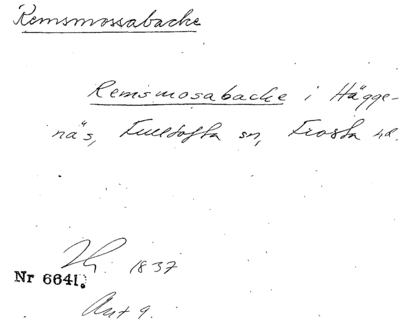 Remsmossabacke
Remsmosabacke i Hägge-
näs, Fulltofta sn, Frosta hd.
1837
Nr 6641.
Ant 9.